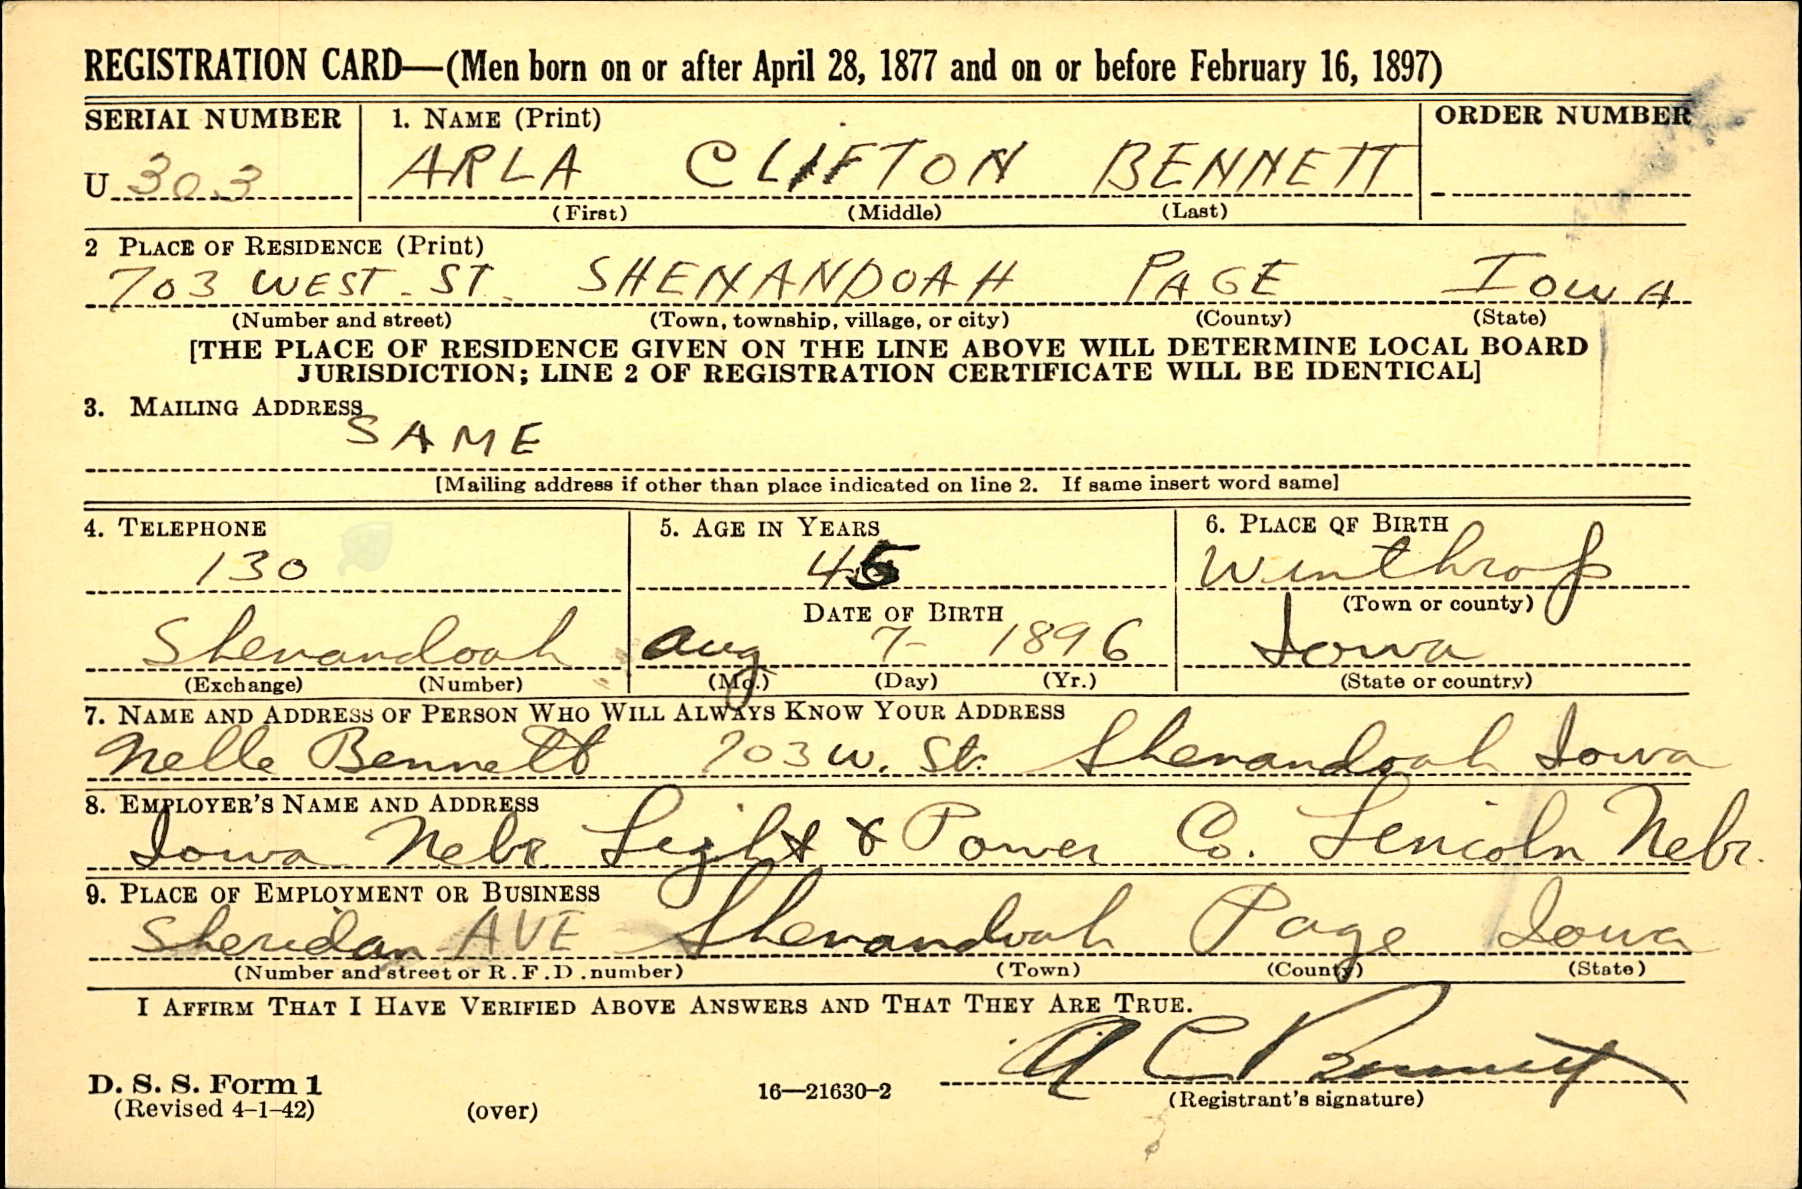 REGISTRATION CARD—(Men born on or after April 28, 1877 and on or before February 16, 1897)
SERIAL NUMBER 1. NAME (Print) ORDER NUMBER
U 303 ARLA CLIFTON BENNETT
(First) (Middle) (Last)
2 PLACE OF RESIDENCE (Print)
703 WEST ST. SHENANDOAH PAGE IOWA
(Number and street) (Town, township, village, or city) (County) (State)
[THE PLACE OF RESIDENCE GIVEN ON THE LINE ABOVE WILL DETERMINE LOCAL BOARD
JURISDICTION; LINE 2 OF REGISTRATION CERTIFICATE WILL BE IDENTICAL]
3. MAILING ADDRESS
SAME
[Mailing address if other than place indicated on line 2. If same insert word same]
4. TELEPHONE 5. AGE IN YEARS 6. PLACE OF BIRTH
130 45 Winthrop
DATE OF BIRTH (Town or county)
Shenandoah Aug 7- 1896 Iowa
(Exchange) (Number) (Mo.) (Day) (Yr.) (State or country)
7. NAME AND ADDRESS OF PERSON WHO WILL ALWAYS KNOW YOUR ADDRESS
Nelle Bennett 703 W. St. Shenandoah Iowa
8. EMPLOYER'S NAME AND ADDRESS
Iowa Nebr Light & Power Co. Lincoln Nebr.
9. PLACE OF EMPLOYMENT OR BUSINESS
Sheridan AVE Shenandoah Page Iowa
(Number and street or R.F.D. number) (Town) (County) (State)
I AFFIRM THAT I HAVE VERIFIED ABOVE ANSWERS AND THAT THEY ARE TRUE.
A C Bennett
D. S. S. Form 1
(Revised 4-1-42) (over) 16—21630-2 (Registrant's signature)